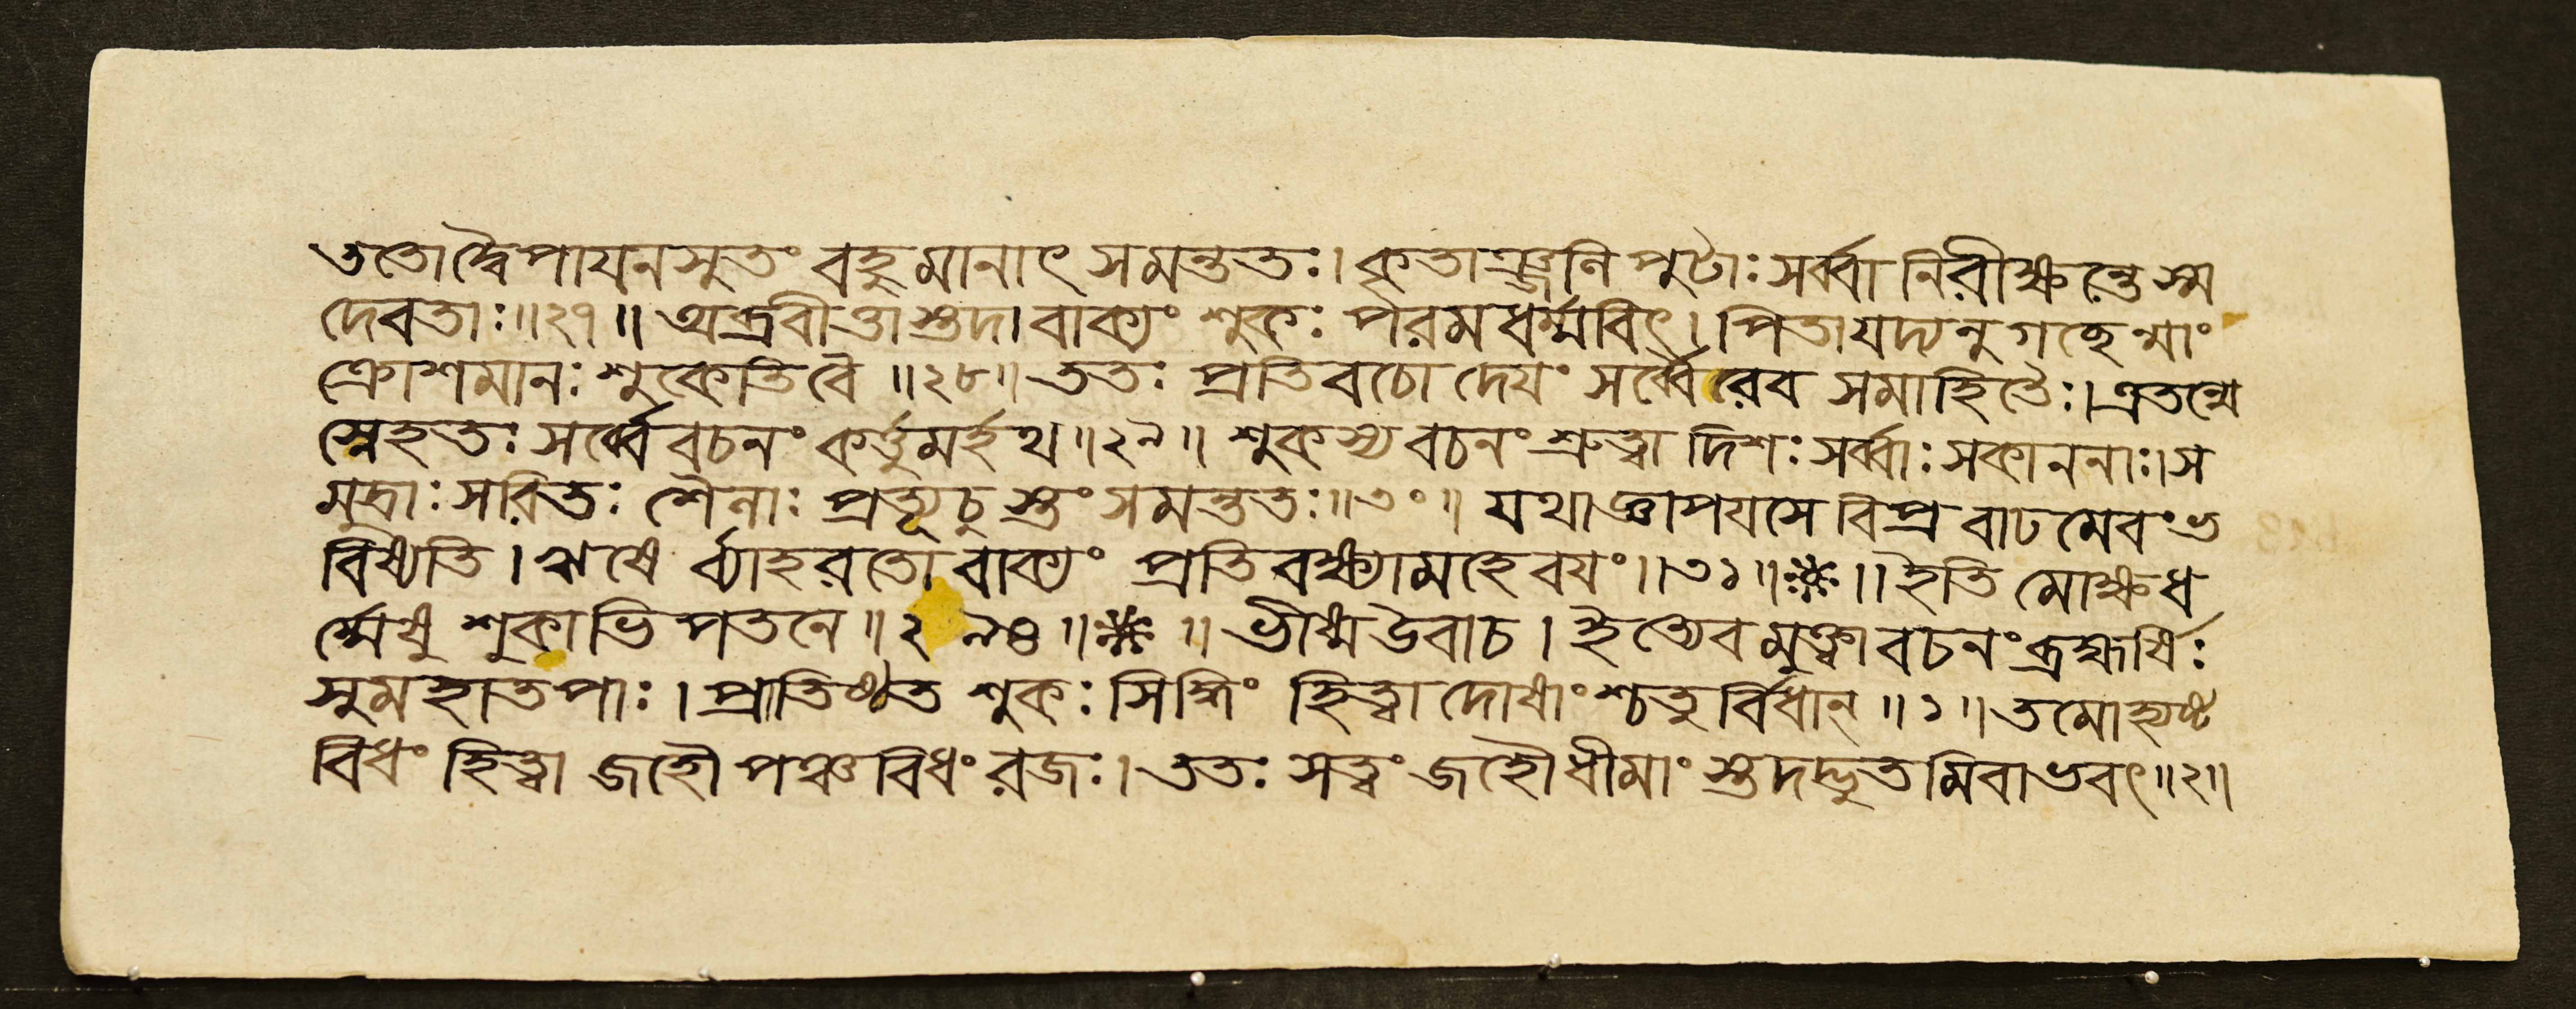 ততোদ্বৈপায়নসুতং বহুমানাৎ সমন্ততঃ। কৃতাঞ্জলি পুটাঃ সর্ব্বা নিরীক্ষন্তেস্ম
দেবতাঃ॥২৭॥ অব্রবীত্তাস্তদা বাক্যং শুকঃ পরমধর্ম্মবিৎ। পিতাযদ্যনুগচ্ছেন্মাং
ক্রোশমানঃ শুকেতিবৈ॥২৮॥ ততঃ প্রতিবচোদেয়ং সর্ব্বৈরেব সমাহিতৈঃ। এতন্মে
স্নেহতঃ সর্ব্বে বচনং কর্ত্তুমর্হথ॥২৯॥ শুকস্য বচনং শ্রুত্বা দিশঃ সর্ব্বাঃ সকাননাঃ। স
মুদ্রাঃ সরিতঃ শৈলাঃ প্রত্যূচুস্তং সমন্ততঃ॥৩০॥ যথাজ্ঞাপয়সে বিপ্র বাঢমেবংভ
বিষ্যতি। ঋষে র্ব্যাহরতোবাক্যং প্রতিবক্ষ্যামহেবয়ং॥৩১॥※॥ ইতি মোক্ষধ
র্ম্মেষু শুকাভিপতনে॥২৯৪॥※॥ ভীষ্মউবাচ। ইত্যেবমুক্ত্বাবচনং ব্রহ্মর্ষিঃ
সুমহাতপাঃ। প্রাতিষ্ঠত শুকঃ সিদ্ধিং হিত্বা দোষাংশ্চতুর্বিধান্॥১॥ তমোহ্যষ্ট
বিধং হিত্বা জহৌ পঞ্চবিধং রজঃ। ততঃ সত্বং জহৌধীমাংস্তদদ্ভুতমিবাভবৎ॥২॥